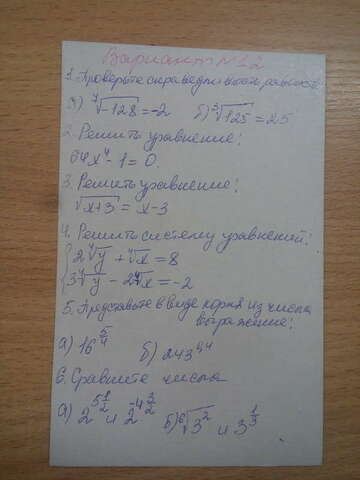 Вариант №12
1. Проверьте справедливость равенств
а) ⁷√-128 = -2 б) ³√125 = 25
2. Решить уравнение:
64x⁴ - 1 = 0
3. Решить уравнение:
√x+3 = x-3
4. Решить систему уравнений:
{2⁴√y + ⁴√x = 8
3⁴√y - 2⁴√x = -2
5. Представьте в виде корня из числа
выражение:
а) 16^5/4 б) 243^0,4
6. Сравните числа
а) 2^5 1/2 и 2^-4 3/2 б) ⁶√3² и 3^1/3